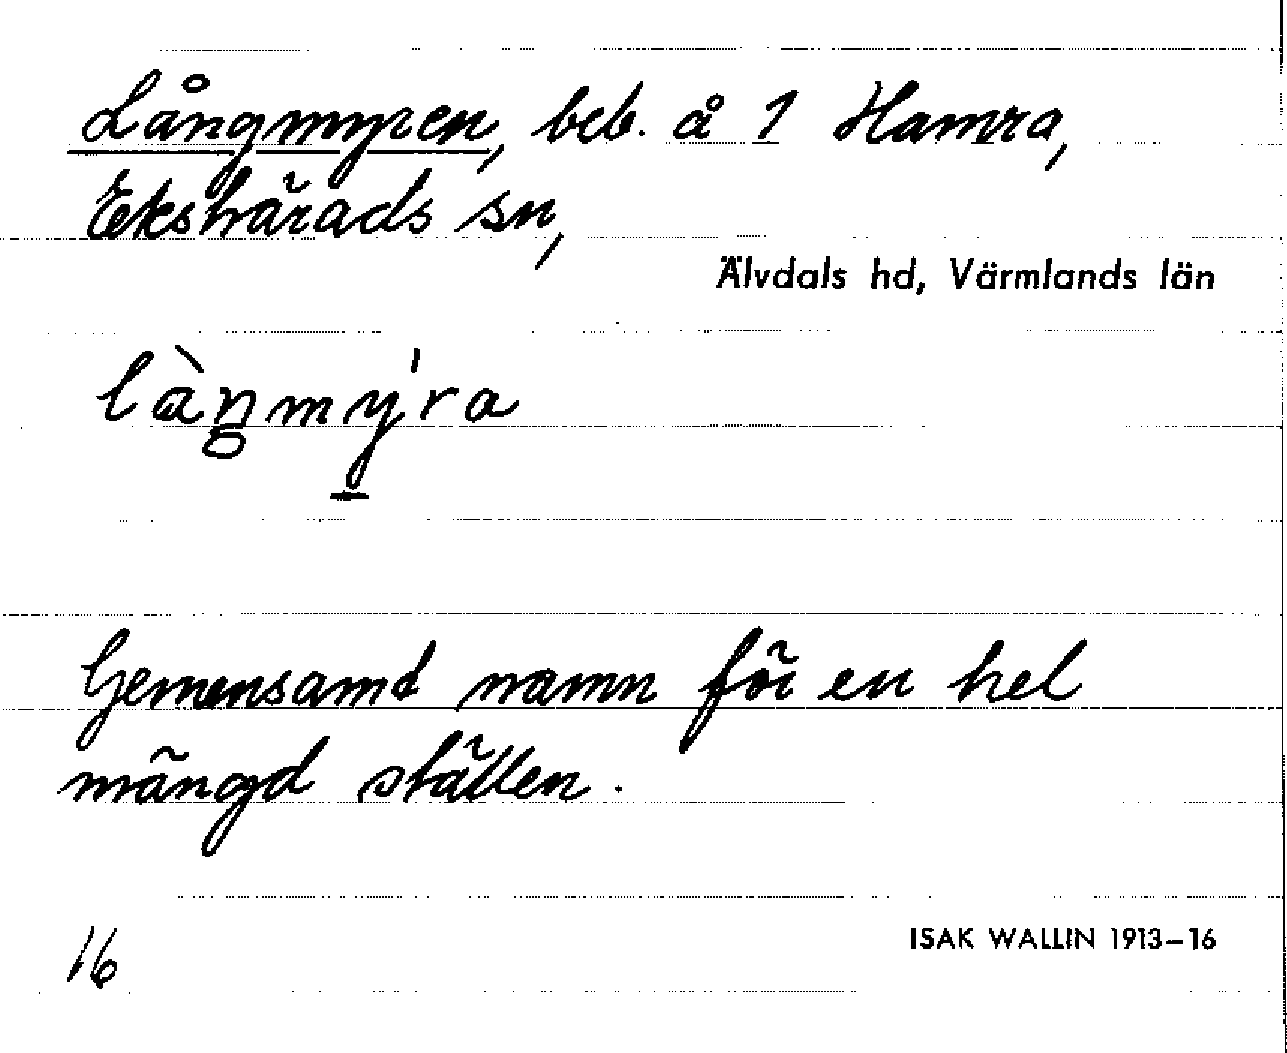 Långmyren, beb. å 1 Hamra,
Ekshärads sn,
Älvdals hd, Värmlands län
là̀ŋmy̠'ra
Gemensamt namn för en hel
mängd ställen.
16
ISAK WALLIN 1913–16